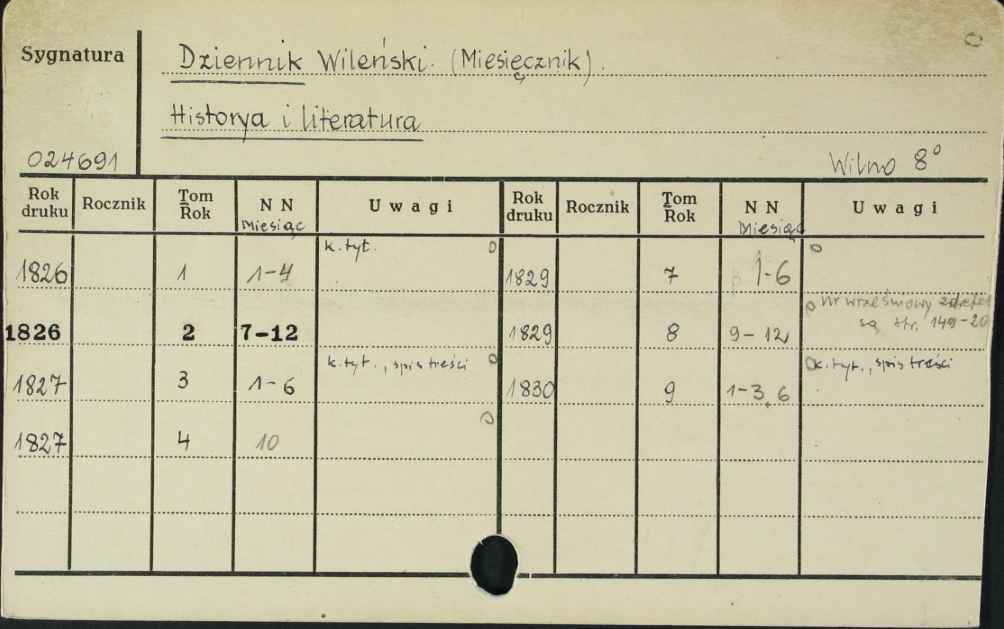 Sygnatura
Dziennik Wileński. (Miesięcznik).
Historya i literatura
024691
Wilno 8°
Rok druku Rocznik Tom Rok N N Miesiąc Uwagi Rok druku Rocznik Tom Rok N N Miesiąc Uwagi
1826 1 1-4 k. tyt. 1829 7 1-6
1826 2 7-12 1829 8 9-12 Nr wrześniowy
są str. 149-20
1827 3 1-6 k. tyt., spis treści 1830 9 1-3, 6 k. tyt., spis treści
1827 4 10